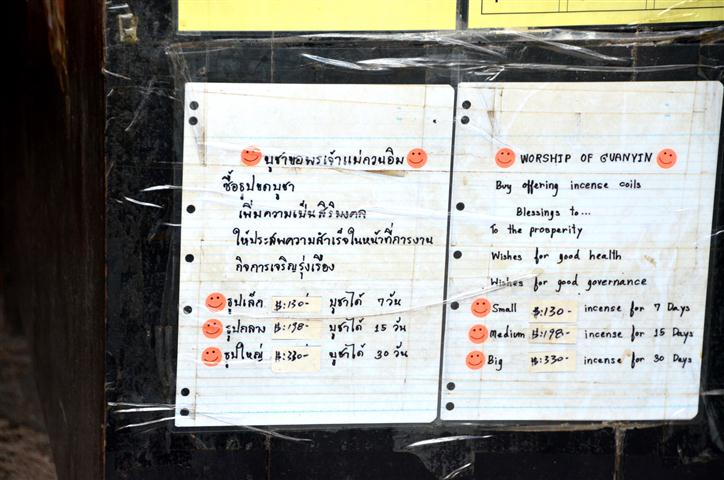 บูชาขอพรเจ้าแม่กวนอิม
ซื้อธูปขดบูชา
เพิ่มความเป็นสิริมงคล
ให้ประสพความสำเร็จในหน้าที่การงาน
กิจการเจริญรุ่งเรือง
ธูปเล็ก ฿:130- บูชาได้ 7 วัน
ธูปกลาง ฿:198- บูชาได้ 15 วัน
ธูปใหญ่ ฿:330- บูชาได้ 30 วัน
WORSHIP OF GUANYIN
Buy offering incense coils
Blessings to...
To the prosperity
Wishes for good health
Wishes for good governance
Small ฿:130- incense for 7 Days
Medium ฿:198- incense for 15 Days
Big ฿:330- incense for 30 Days